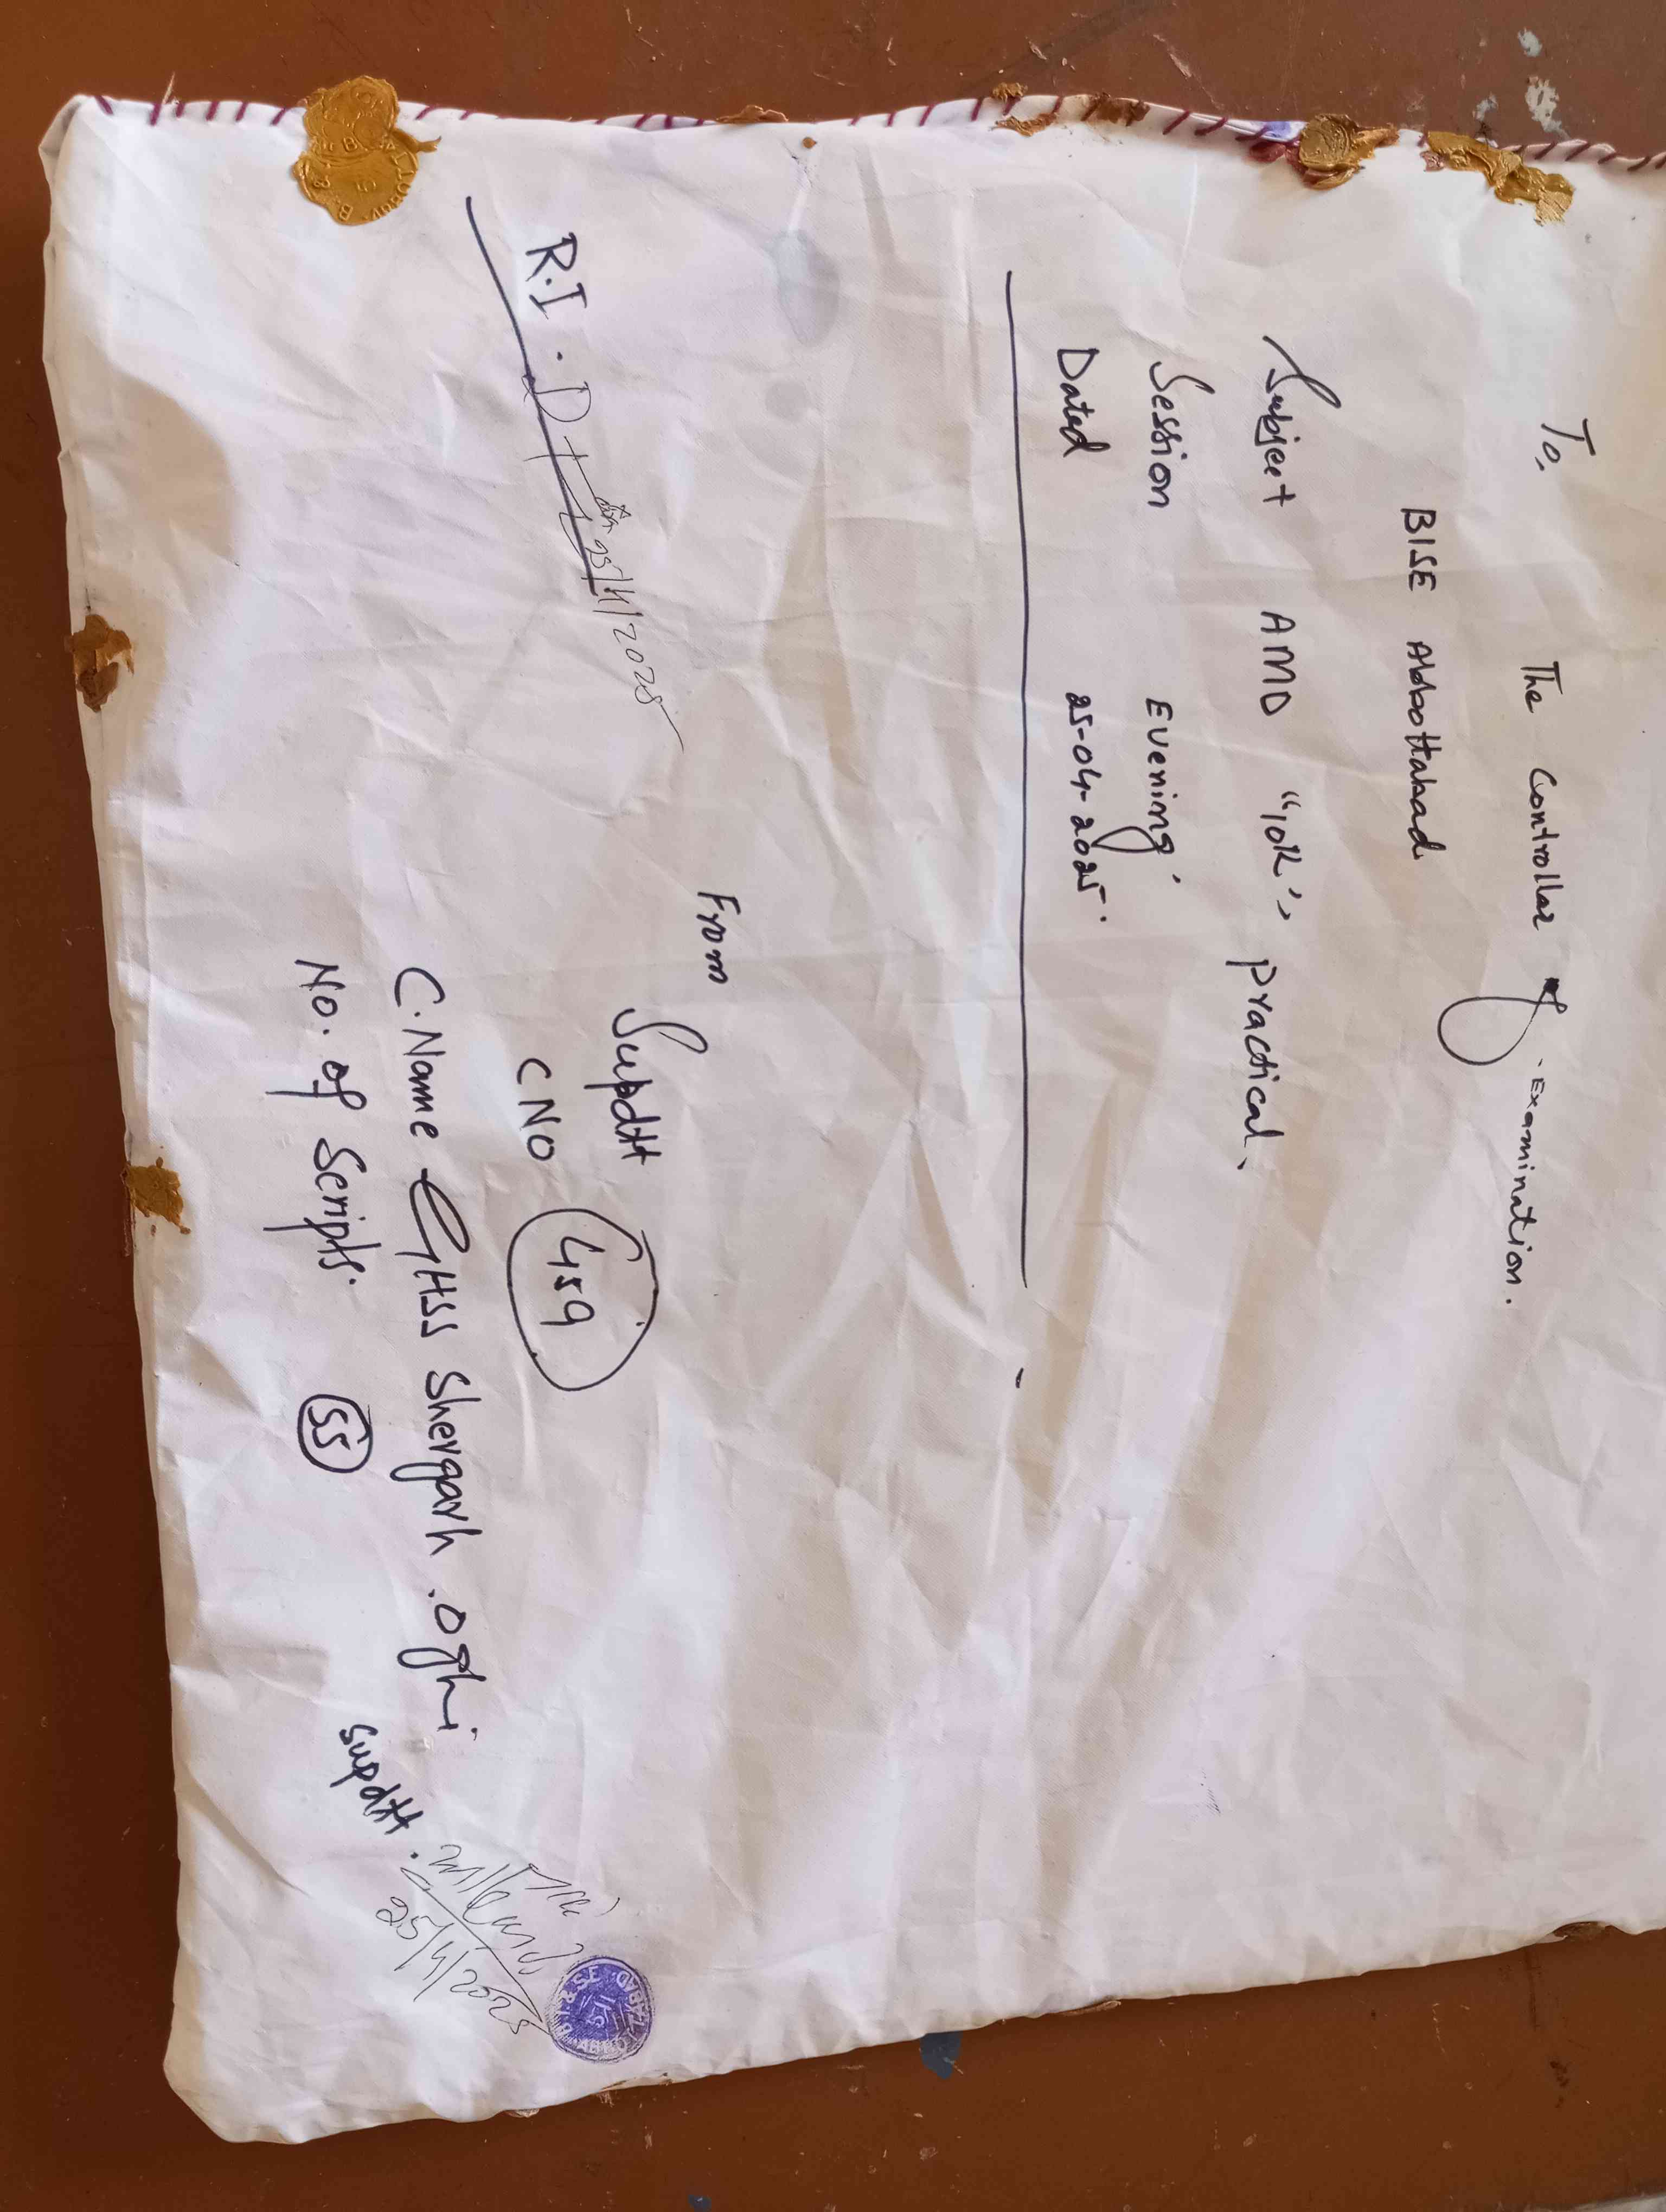 To, The Controller of Examination.
BISE Abbottabad
Subject AMD "10k" Practical.
Session Evening
Dated 25-04-2025
From
Supdtt
C NO 459
C.Name GHSS Shergarh .Oghi
No. of Scripts. 55
R.I. 25/4/2025
Supdtt.
25/4/2025